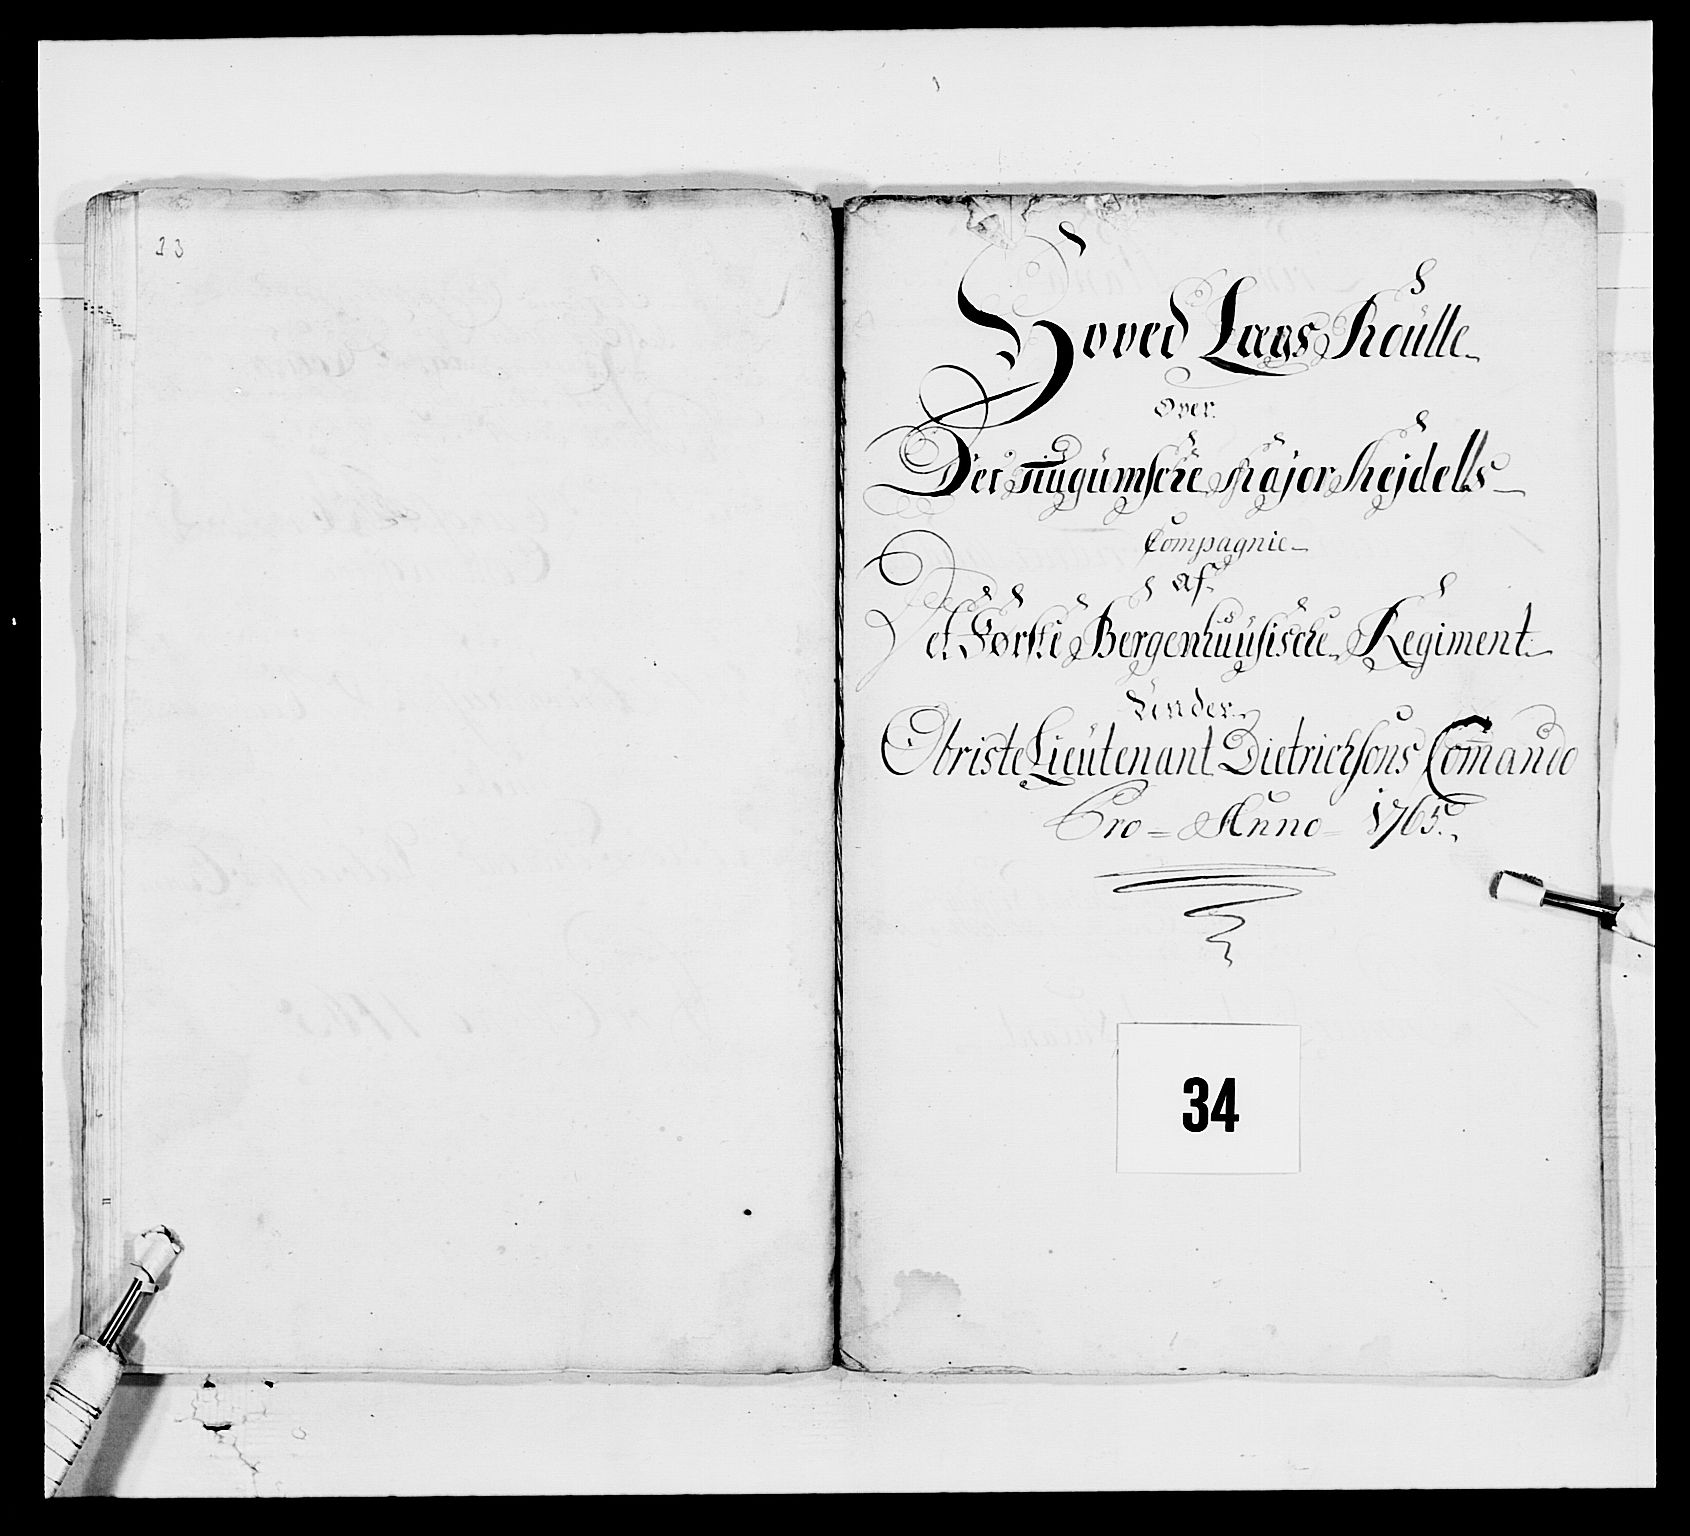 23
Hoved Lægs Roülle
Over
Det Major
Compagnie
Af
Det Første Bergenhuusische Regiment
Ünder
Obriste Lieütenant Dietrichsons Com̄ando
Pro = Anno = 1765.
34